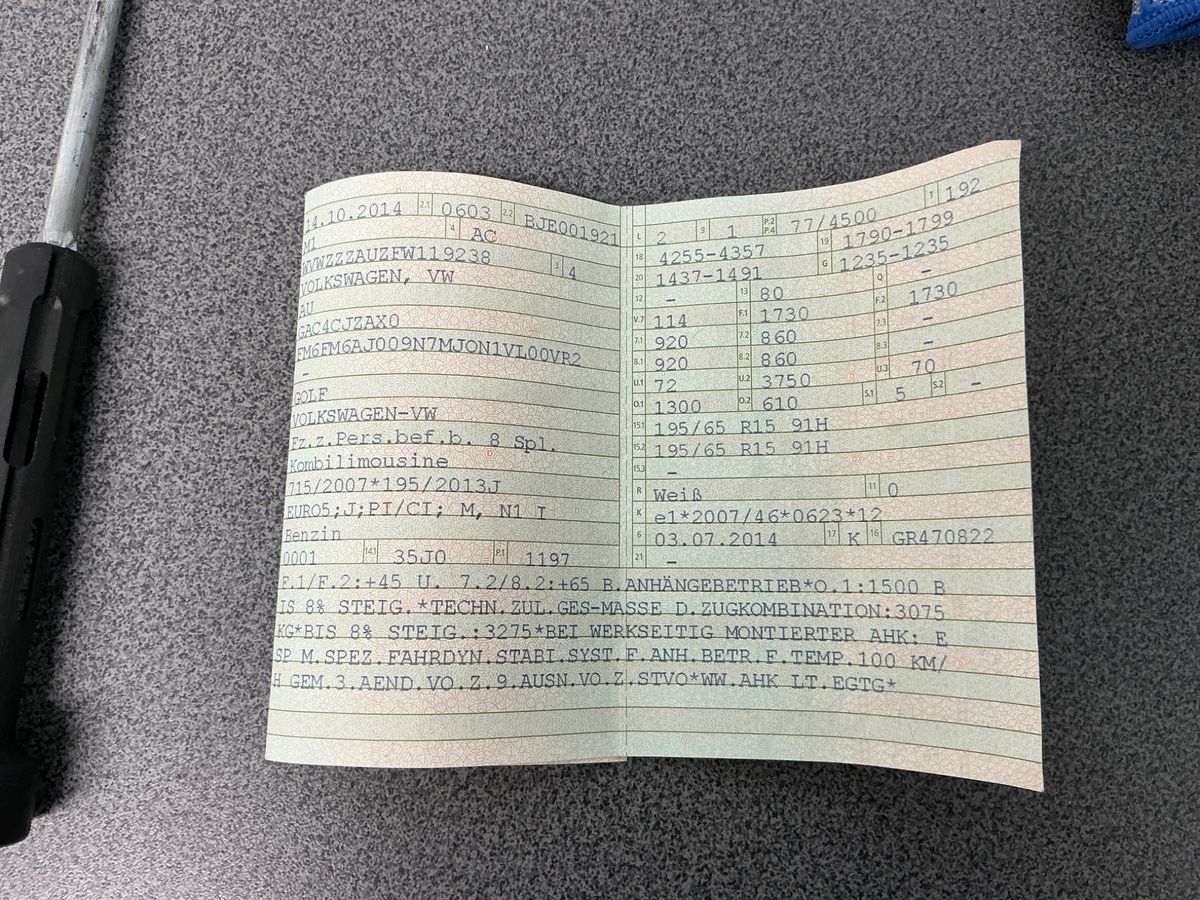 14.10.2014 2.1 0603 2.2 BJE001921
M1 4 AC
WVWZZZAUZFW119238 3 4
VOLKSWAGEN, VW
AU
GAC4CJZAX0
FM6FM6AJ009N7MJON1VL00VR2
-
GOLF
VOLKSWAGEN-VW
Fz.z.Pers.bef.b. 8 Spl.
Kombilimousine
715/2007*195/2013J
EURO5;J;PI/CI; M, N1 I
Benzin
0001 14.1 35J0 P.1 1197
L 2 9 1 P.2 P.4 77/4500 T 192
18 4255-4357 19 1790-1799
20 1437-1491 G 1235-1235
12 - 13 80 Q -
V.7 114 F.1 1730 F.2 1730
7.1 920 7.2 860 7.3 -
8.1 920 8.2 860 8.3 -
U.1 72 U.2 3750 U.3 70
O.1 1300 O.2 610 S.1 5 S.2 -
15.1 195/65 R15 91H
15.2 195/65 R15 91H
15.3 -
R Weiß 11 0
K e1*2007/46*0623*12
6 03.07.2014 17 K 16 GR470822
21 -
F.1/F.2:+45 U. 7.2/8.2:+65 B.ANHÄNGEBETRIEB*O.1:1500 B
IS 8% STEIG.*TECHN.ZUL.GES-MASSE D.ZUGKOMBINATION:3075
KG*BIS 8% STEIG.:3275*BEI WERKSEITIG MONTIERTER AHK: E
SP M.SPEZ.FAHRDYN.STABI.SYST.F.ANH.BETR.F.TEMP.100 KM/
H GEM.3.AEND.VO.Z.9.AUSN.VO.Z.STVO*WW.AHK LT.EGTG*